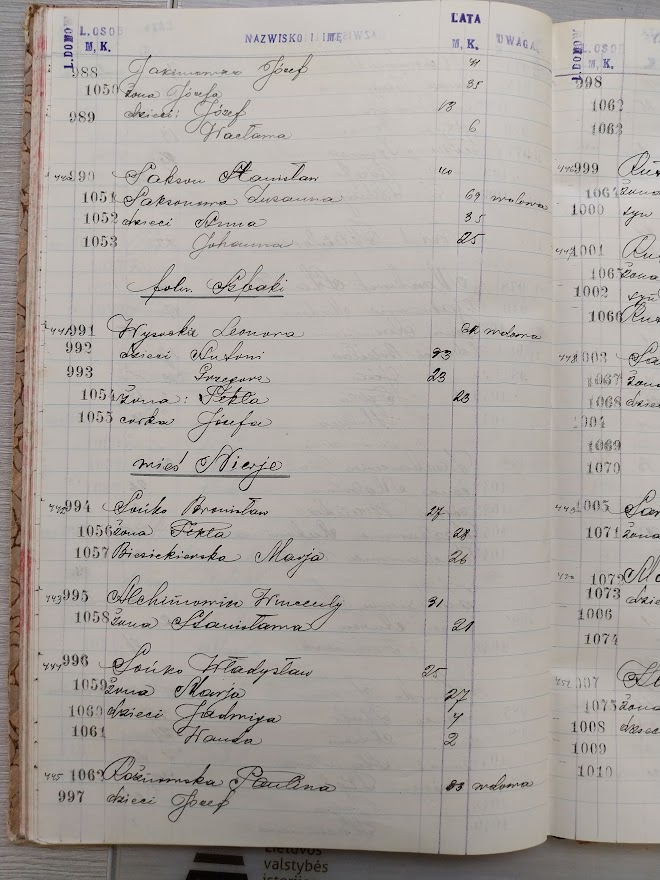 L.DOMO L.OSOB M. K. NAZWISKO I IMIĘ LATA M. K. UWAGA.
988 Józef 41
1050 żona Józefa 35
989 dzieci: Józef 13
Wacława 6
990 Sakson Stanisław 40
1051 Saksonowa Zuzanna 69 wdowa
1052 dzieci Anna 35
1053 Johanna 25
folw. Szbaki
441 991 Wysocka Leonora wdowa
992 dzieci Antoni
993 Grzegorz 23
1054 żona: Tekla 23
1055 córka Józefa
mieś Nierje
442 994 Sońko Bronisław 27
1056 żona Tekla 28
1057 Biesiekierska Marja 26
443 995 Alchimowicz Wincenty 31
1058 żona Stanisława 21
444 996 Sońko Władysław 25
1059 żona Marja 27
1060 dzieci Jadwiga 4
1061 Wanda 2
445 1062 Paulina 83 wdowa
997 dzieci Józef
L.DOMO L.OSOB M. K.
998
1062
1063
446 999
1064 żona
1000 syn
447 1001
1065 żona
1002 syn
1066
448 1003
1067 żona
1068 dzieci
1004
1069
1070
449 1005
1071 żona
450 1072
1073 dzieci
1006
1074
451 1007
1075 żona
1008 dzieci
1009
1010
Lietuvos
valstybės
istorijos